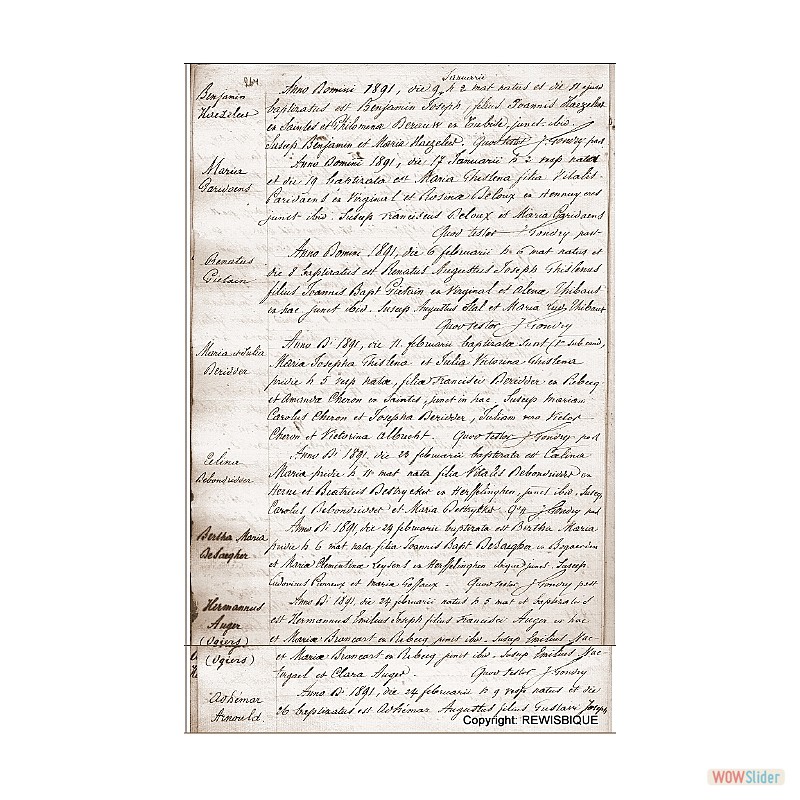 Januarii
Benjamin
Haezeleer
Anno Domini 1891, die 9 h 2 mat natus et die 11 ejusd
baptizatus est Benjamin Joseph, filius Joannis Haezeleer
ex Saintes et Philomena ex Tubise, junct. ibid.
Suscep Benjamin et Maria Haezeleer. Quod testor J Tondry past
Maria
Paridaens
Anno Domini 1891, die 17 Januarii h 2 vesp nata
et die 19 baptizata est Maria Ghislena filia Vitalis
Paridaens ex Virginal et Rosinæ Deloux ex Hennuyeres
junct ibid. Suscep Franciscus Deloux et Maria Paridaens
Quod testor J Tondry past
Renatus
Pietain
Anno Domini 1891, die 6 februarii h 6 mat natus et
die 8 baptizatus est Renatus Augustus Joseph Ghislenus
filius Joannis Bapt Pietain ex Virginal et Thibaut
ex hac junct ibid. Suscep Augustus Stal et Maria Thibaut
Quod testor J Tondry
Maria et Julia
Deridder
Anno D. 1891, die 11 februarii baptizatæ sunt (1a sub cond,
Maria Josepha Ghislena et Julia Victorina Ghislena
pridie h 5 vesp natæ, filiæ Francisci Deridder ex Rebecq
et Amanda Cheron ex Saintes, junct in hac. Suscep Mariam
Carolus Cheron et Josepha Deridder, Juliam vero Victor
Cheron et Victorina Albrecht. Quod testor J Tondry past
Celina
Debondridder
Anno D. 1891, die 23 februarii baptizata est Cælina
Maria pridie h 11 mat nata filia Vitalis Debondridder ex
Herne et Beatricis ex Herffelinghen, junct ibid. Suscep
Carolus Debondridder et Maria J Tondry past
Bertha Maria
DeSaegher
Anno D. 1891, die 24 februarii baptizata est Bertha Maria
pridie h 6 mat nata filia Joannis Bapt DeSaegher ex
et Mariæ Clementinæ ex Herffelinghen junct. Suscep
Ludovicus et Maria Quod testor J Tondry past
Hermannus
Auger
(Ogiers)
Anno D. 1891, die 24 februarii natus h 5 mat et baptizatus
est Hermannus Emilius Joseph filius Francisci Auger ex hac
et Mariæ Brancart ex Rebecq junct ibid. Suscep Emilius Hac-
(Ogiers)
et Mariæ Brancart ex Rebecq junct ibid. Suscep Emilius Hac-
et Clara Auger. Quod testor J Tondry
Adhémar
Arnould
Anno D. 1891, die 24 februarii h 9 vesp natus et die
26 baptizatus est Adhémar Augustus filius Gustavi Joseph,
Copyright: REWISBIQUE
WOWSlider